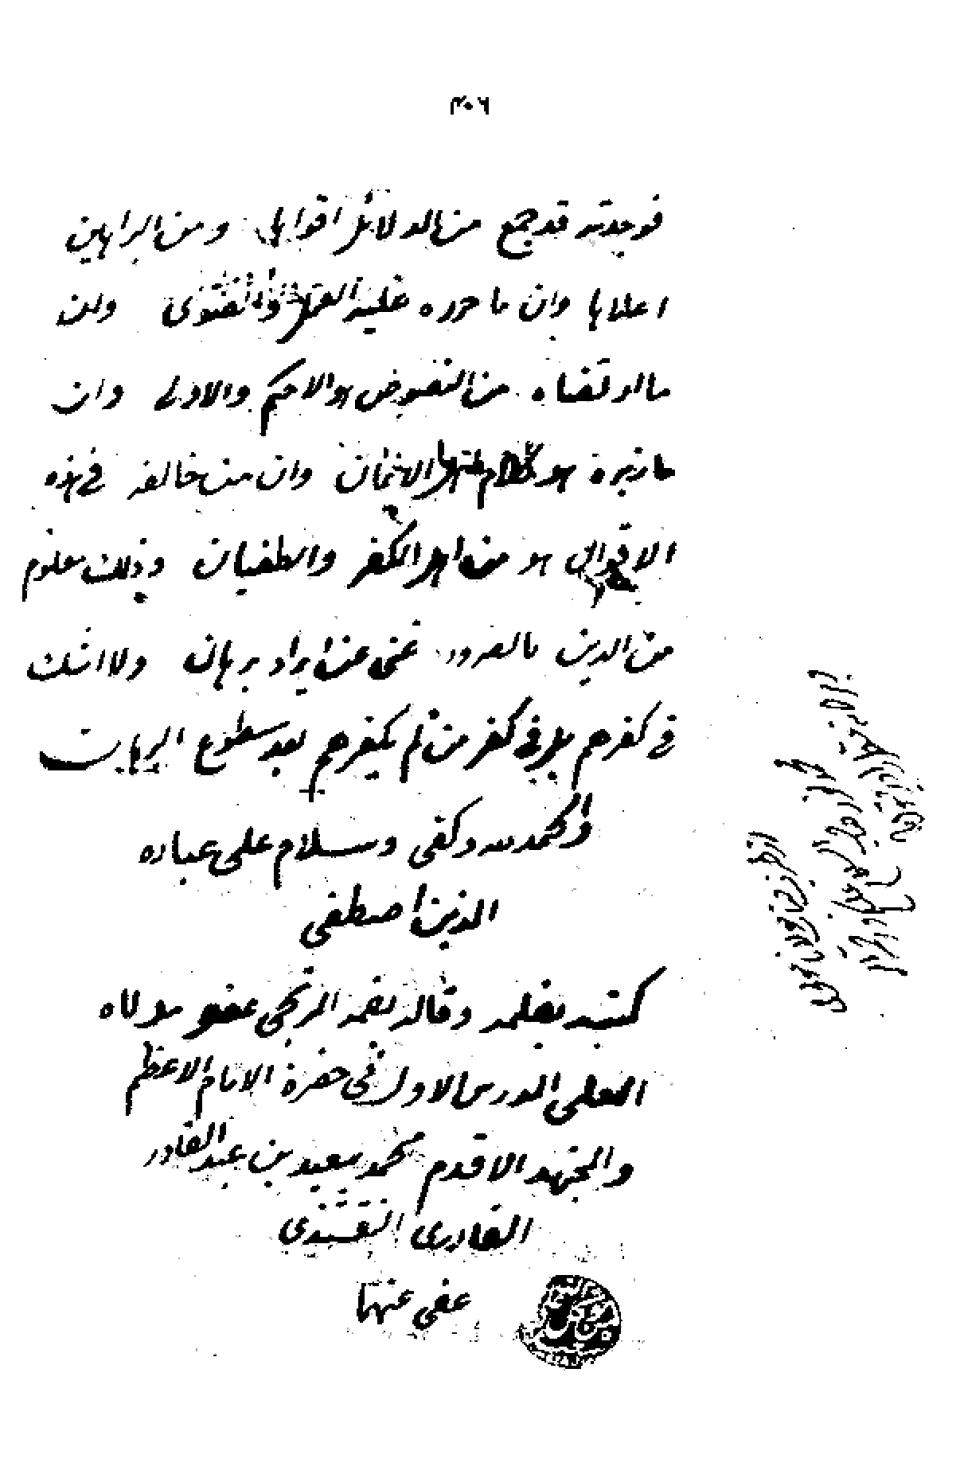 ۴۰۶
فوجدته قد جمع من الدلائل اقواها ومن البراهين
اعلاها وان ما حرره عليه العمل والفتوى وان
ما ارتضاه من النصوص هو الاحكم والاولى وان
ما زبره هو كلام اهل الايمان وان من خالفه في هذه
الاقوال هو من اهل الكفر والطغيان وذلك معلوم
من الدين بالضرورة غنى عن ايراد برهان ولا اشك
في كفرهم بل في كفر من لم يكفرهم بعد سطوع البرهان
والحمد لله وكفى وسلام على عباده
الذين اصطفى
كتبه بقلمه وقاله بفمه المرتجى عفو مولاه
العلى المدرس الاول في حضرة الامام الاعظم
والمجتهد الاقدم محمد سعيد بن عبد القادر
القادرى النقشبندى
عفى عنهما